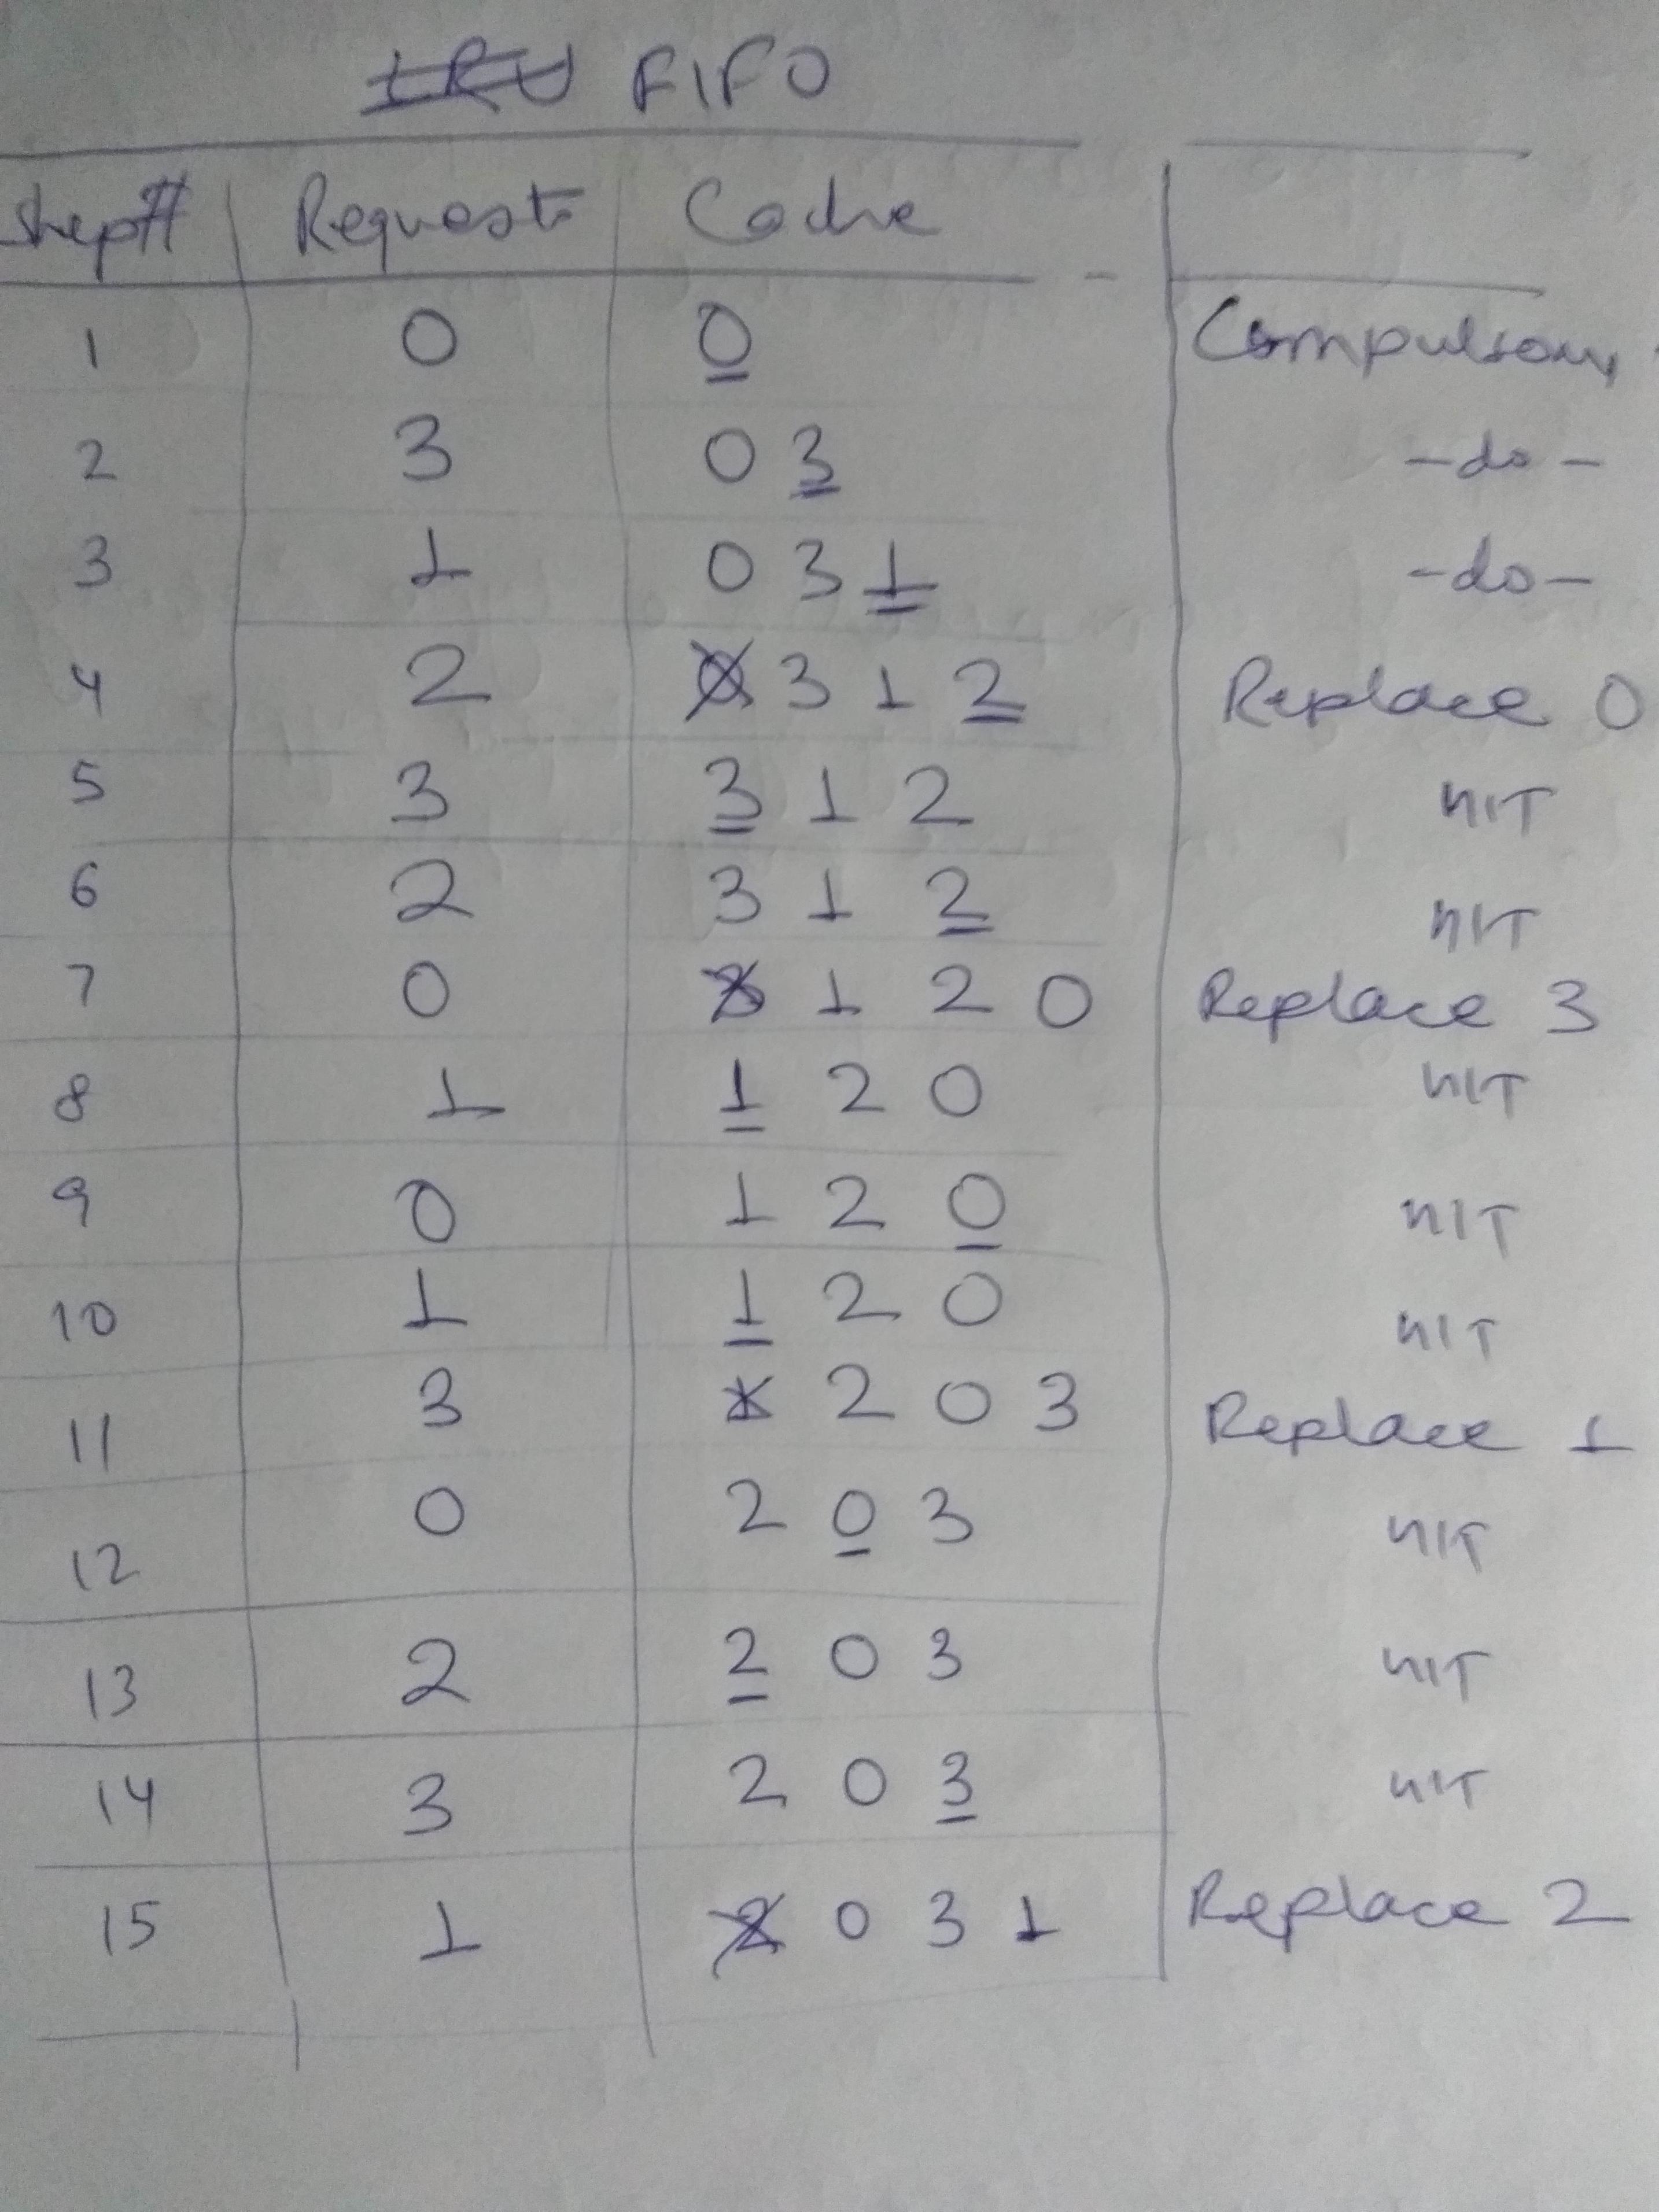 LRU FIFO
Step# Requests Cache
1 0 0 Compulsory
2 3 0 3 -do-
3 1 0 3 1 -do-
4 2 0 3 1 2 Replace 0
5 3 3 1 2 HIT
6 2 3 1 2 HIT
7 0 3 1 2 0 Replace 3
8 1 1 2 0 HIT
9 0 1 2 0 HIT
10 1 1 2 0 HIT
11 3 1 2 0 3 Replace 1
12 0 2 0 3 HIT
13 2 2 0 3 HIT
14 3 2 0 3 HIT
15 1 2 0 3 1 Replace 2